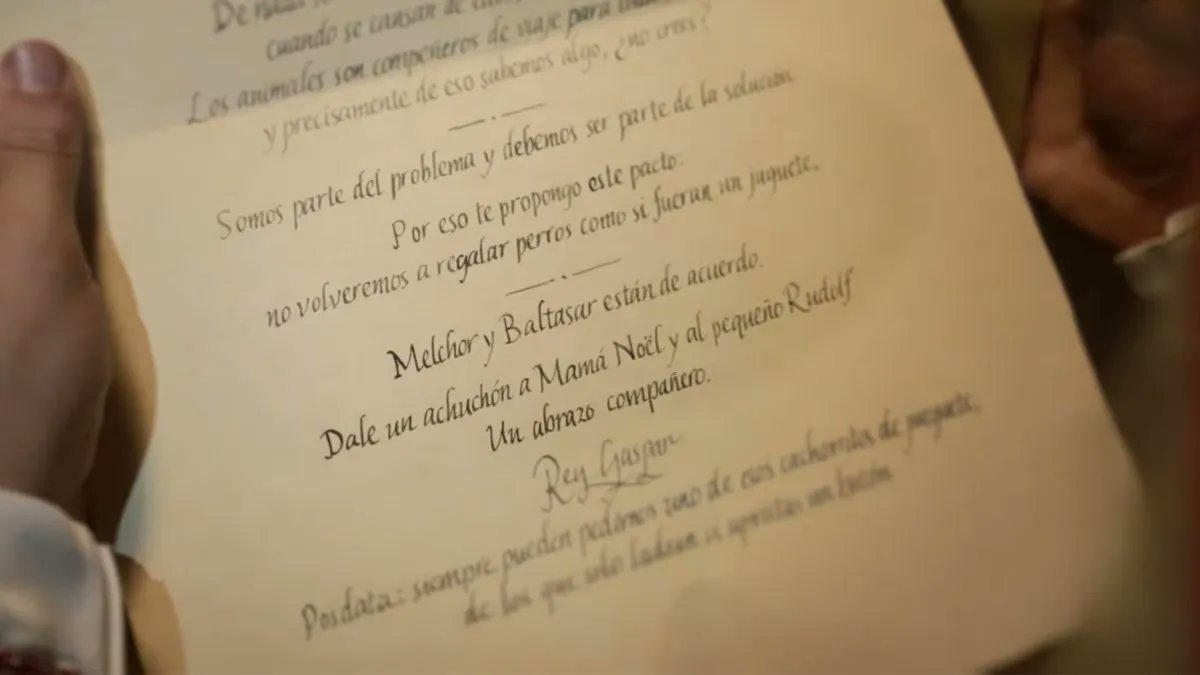 De
cuando se cansan de
Los animales son compeñeros de viaje para
y precisamente de eso sabemos algo, ¿no crees?
Somos parte del problema y debemos ser parte de la solución
Por eso te propongo este pacto:
no volveremos a regalar perros como si fueran un juguete.
Melchor y Baltasar están de acuerdo.
Dale un achuchón a Mamá Noël y al pequeño Rudolf
Un abrazo compañero.
Rey Gaspar
Posdata: siempre pueden pedirnos uno de esos cachorritos de juguete,
de los que sólo ladran si aprietas un botón